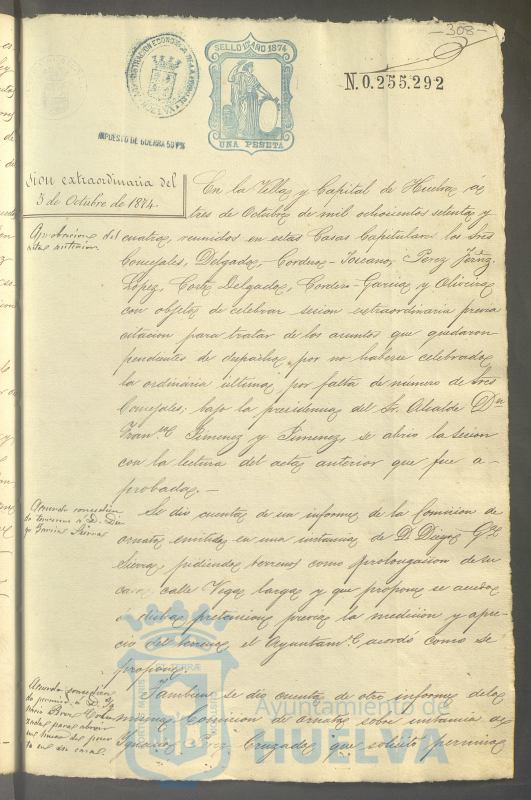 -308-
SELLO 11º AÑO 1874
UNA PESETA
N.0.255.292
IMPUESTO DE GUERRA 50 P%
sion extraordinaria del
3 de Octubre de 1874.
En la Villa y Capital de Huelva, á
tres de Octubre de mil ochocientos setenta y
Aprobacion del
cuatro, reunidos en estas Casas Capitulares los Sres
Concejales, Delgado, - Cordero - Toscano, Perez Jimz.
Lopez, Corte Delgado, Cordero-Garcia y Oliveira
con objeto de celebrar sesion extraordinaria previa
citacion para tratar de los asuntos que quedaron
pendientes de despacho, por no haberse celebrado
la ordinaria última por falta de número de Sres
Concejales; bajo la presidencia del Sr. Alcalde Dn
Franco Jimenez y Jimenez, se abrió la sesion
con la lectura del acta anterior que fue a-
probada. -
Acuerdo concedien
do terreno á D. Die
go Garcia Sierra
Se dió cuenta de un informe de la Comision de
ornato emitido en una instancia de D. Diego Ga
Sierra, pidiendo terreno como prolongacion de su
casa, calle Vega larga y que propone se acceda
á dicha pretension previa la medicion y apre-
cio del terreno, el Ayuntamto acordó como se
propone.
Acuerdo concedien
do permiso á D. Ig
nacio Perez Cru
zado para abrir
una puerta
en su casa.
Tambien se dió cuenta de otro informe de la
misma Comision de ornato sobre instancia de
Ignacio Perez Cruzado que solicitó permiso
PORTUS MARIS ET TERRAE CUSTODIA
Ayuntamiento de
HUELVA